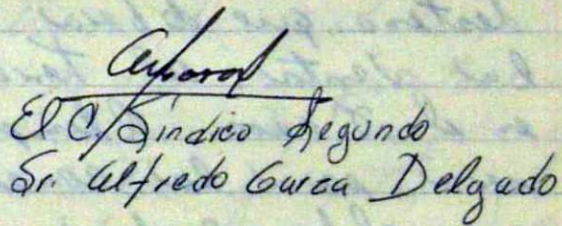 El C. Síndico Segundo
Sr. Alfredo Garza Delgado